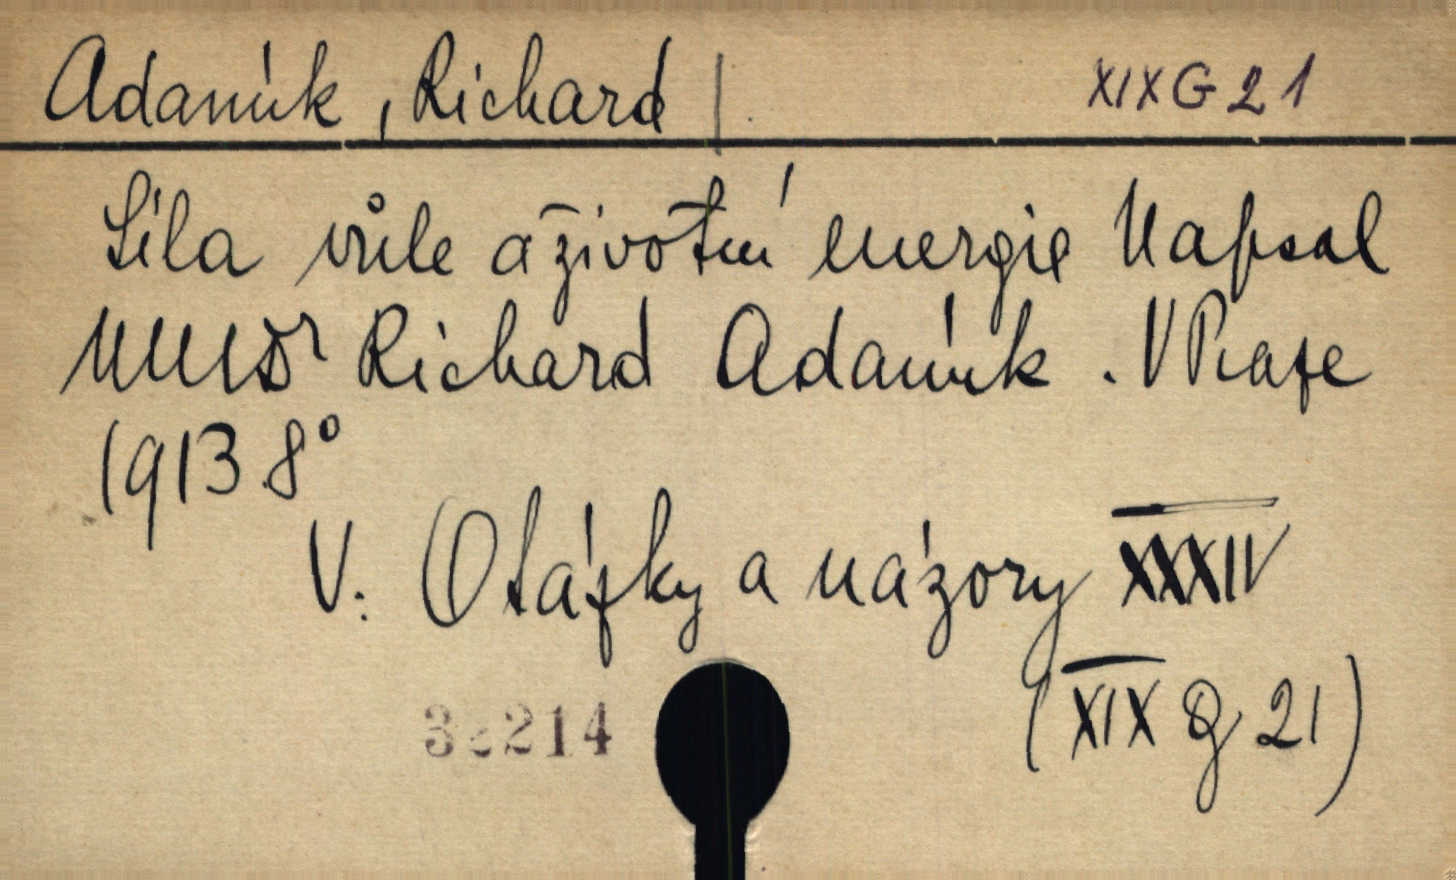 Adamík, Richard | XIX G 21
Síla vůle a životní energie Napsal
MUDr Richard Adamík. V Praze
1913 8°
V: Otázky a názory XXXIV
32214 (XIX G 21)